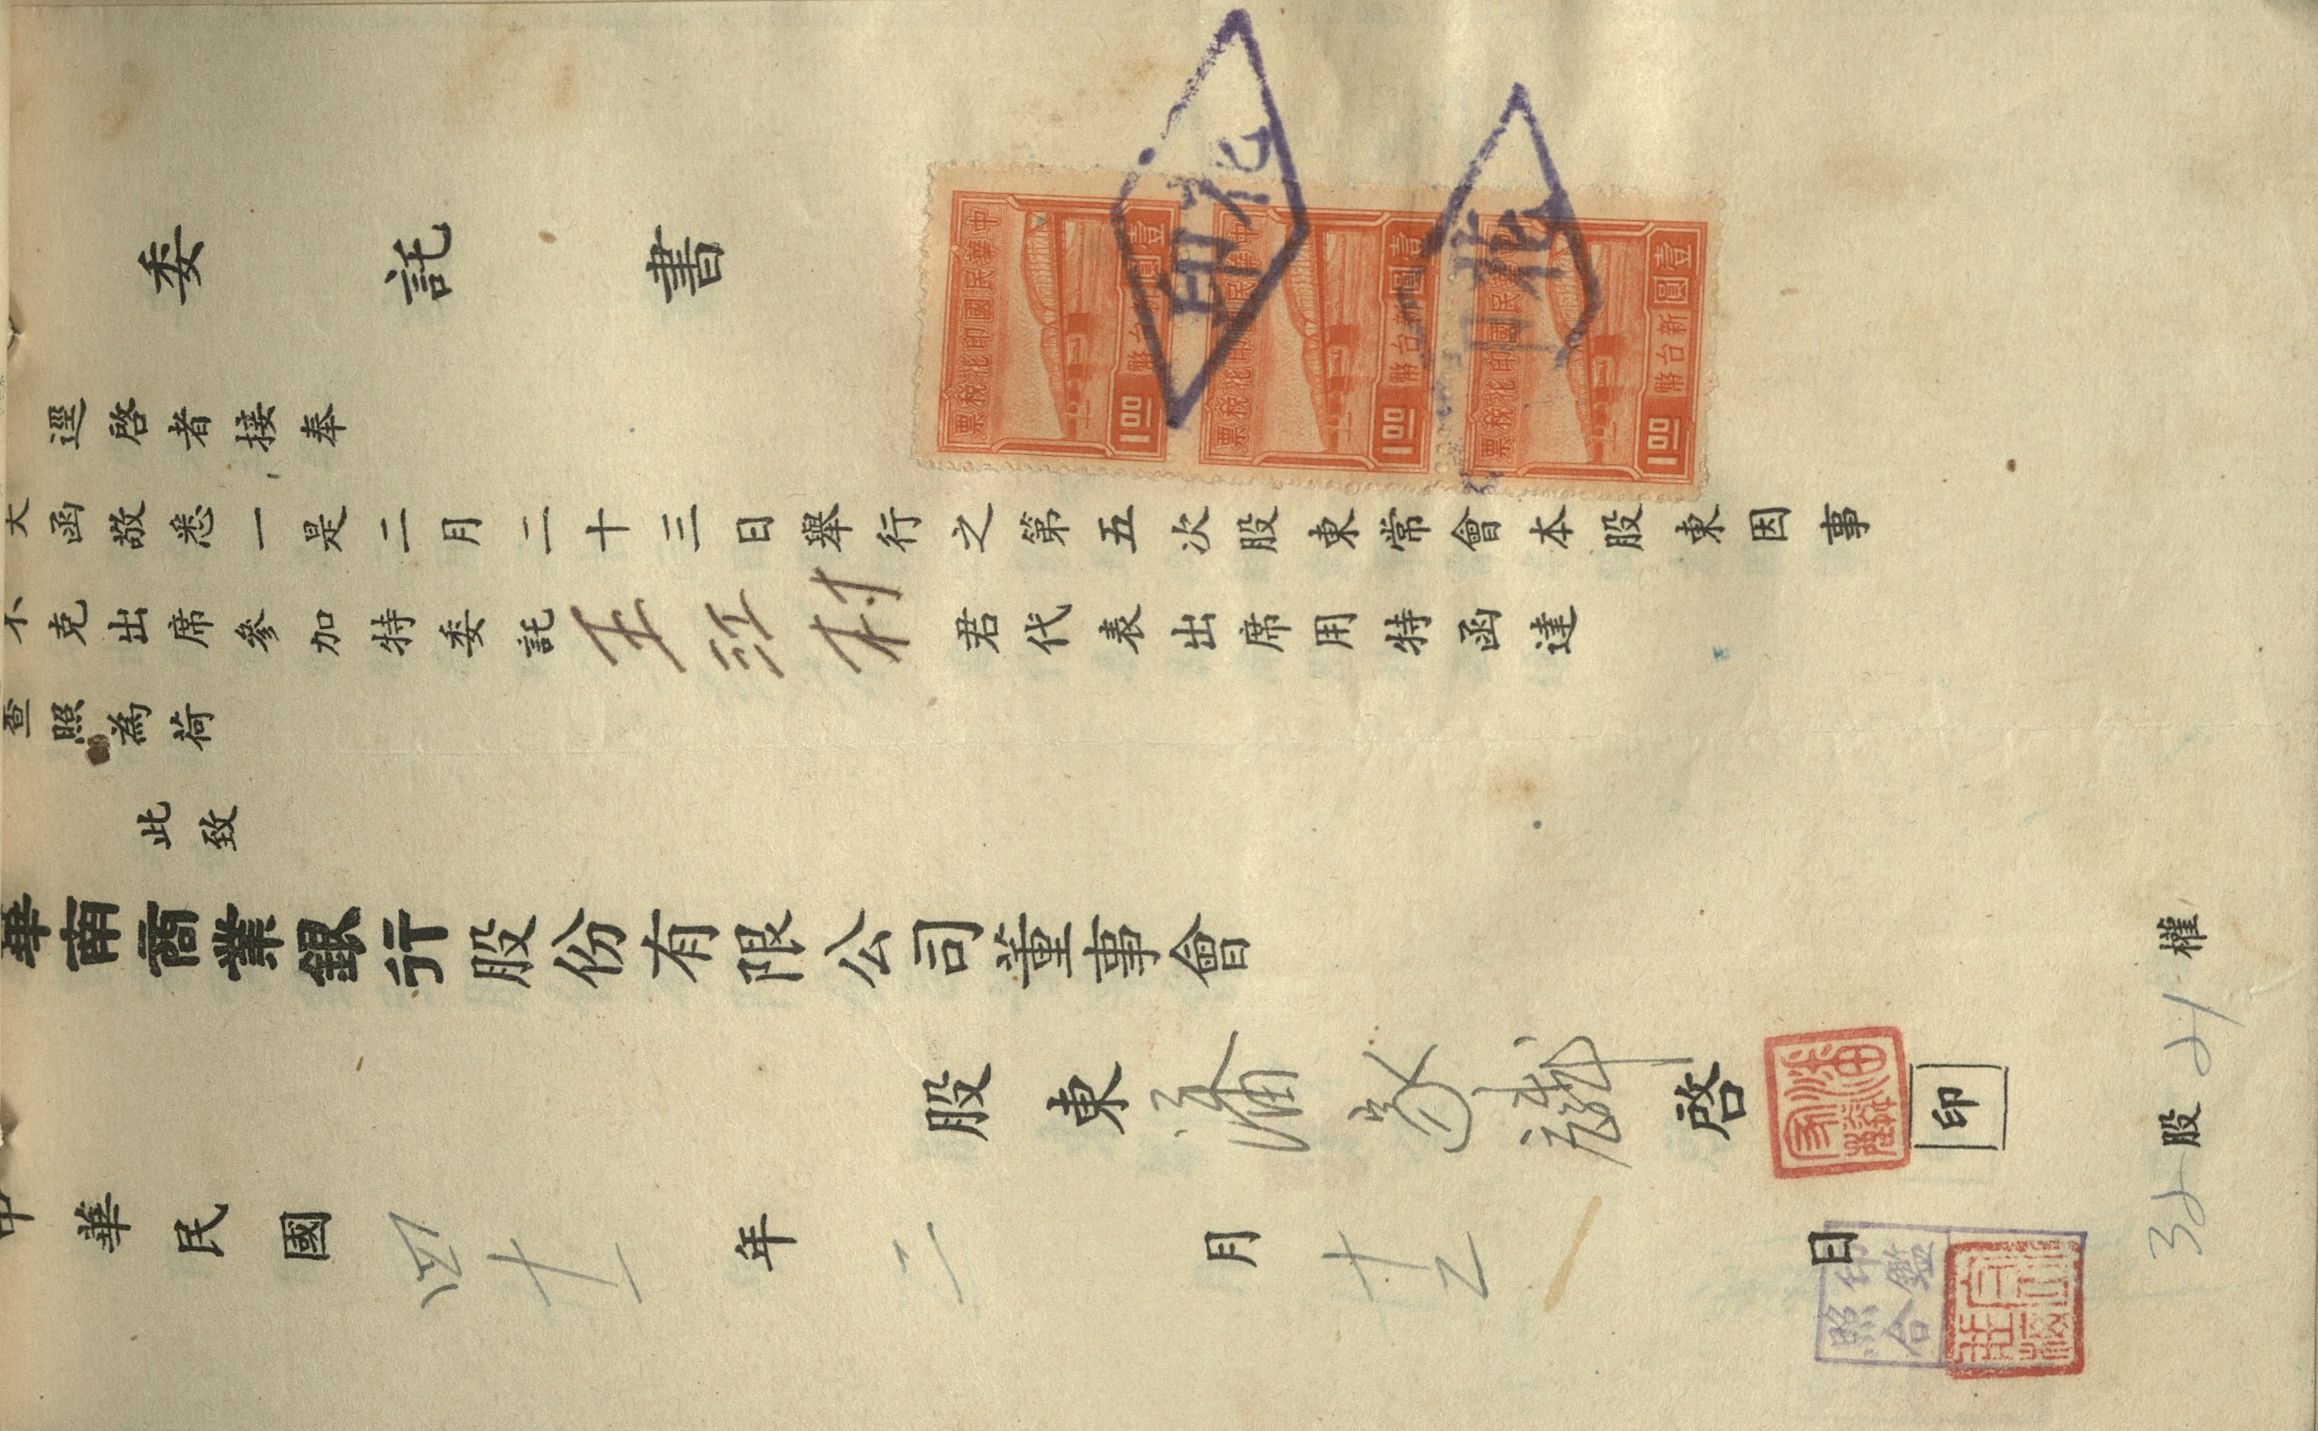 委託書
逕啓者接奉
大函敬悉一是二月二十三日舉行之第五次股東常會本股東因事
不克出席參加特委託王江村君代表出席用特函達
查照為荷
此致
華南商業銀行股份有限公司董事會
股東潘家麟啓
印
中華民國四十一年二月廿二日
32股21權
中華民國印花稅票
壹圓
新台幣
1.00
中華民國印花稅票
壹圓
新台幣
1.00
中華民國印花稅票
壹圓
新台幣
1.00
印花
印花
印鑑
照合